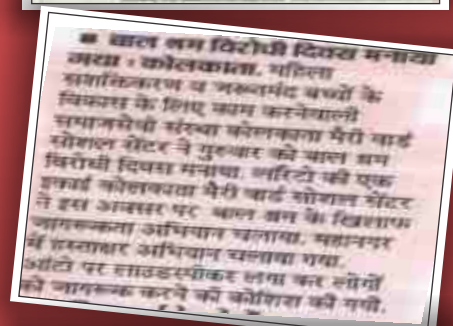 ■ बाल श्रम विरोधी दिवस मनाया
गया : कोलकाता. महिला
सशक्तिकरण व जरूरतमंद बच्चों के
विकास के लिए काम करनेवाली
समाजसेवी संस्था कोलकाता मैरी वार्ड
सोशल सेंटर ने गुरुवार को बाल श्रम
विरोधी दिवस मनाया. लॉरेटो की एक
इकाई कोलकाता मैरी वार्ड सोशल सेंटर
ने इस अवसर पर बाल श्रम के खिलाफ
जागरूकता अभियान चलाया. महानगर
में हस्ताक्षर अभियान चलाया गया.
ऑटो पर लाउडस्पीकर लगा कर लोगों
को जागरूक करने की कोशिश की गयी.